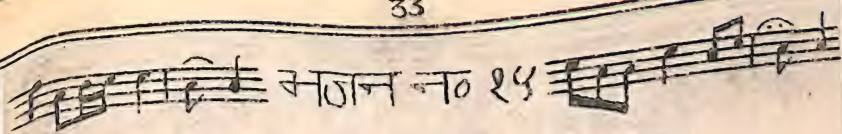 33
भजन न० १५